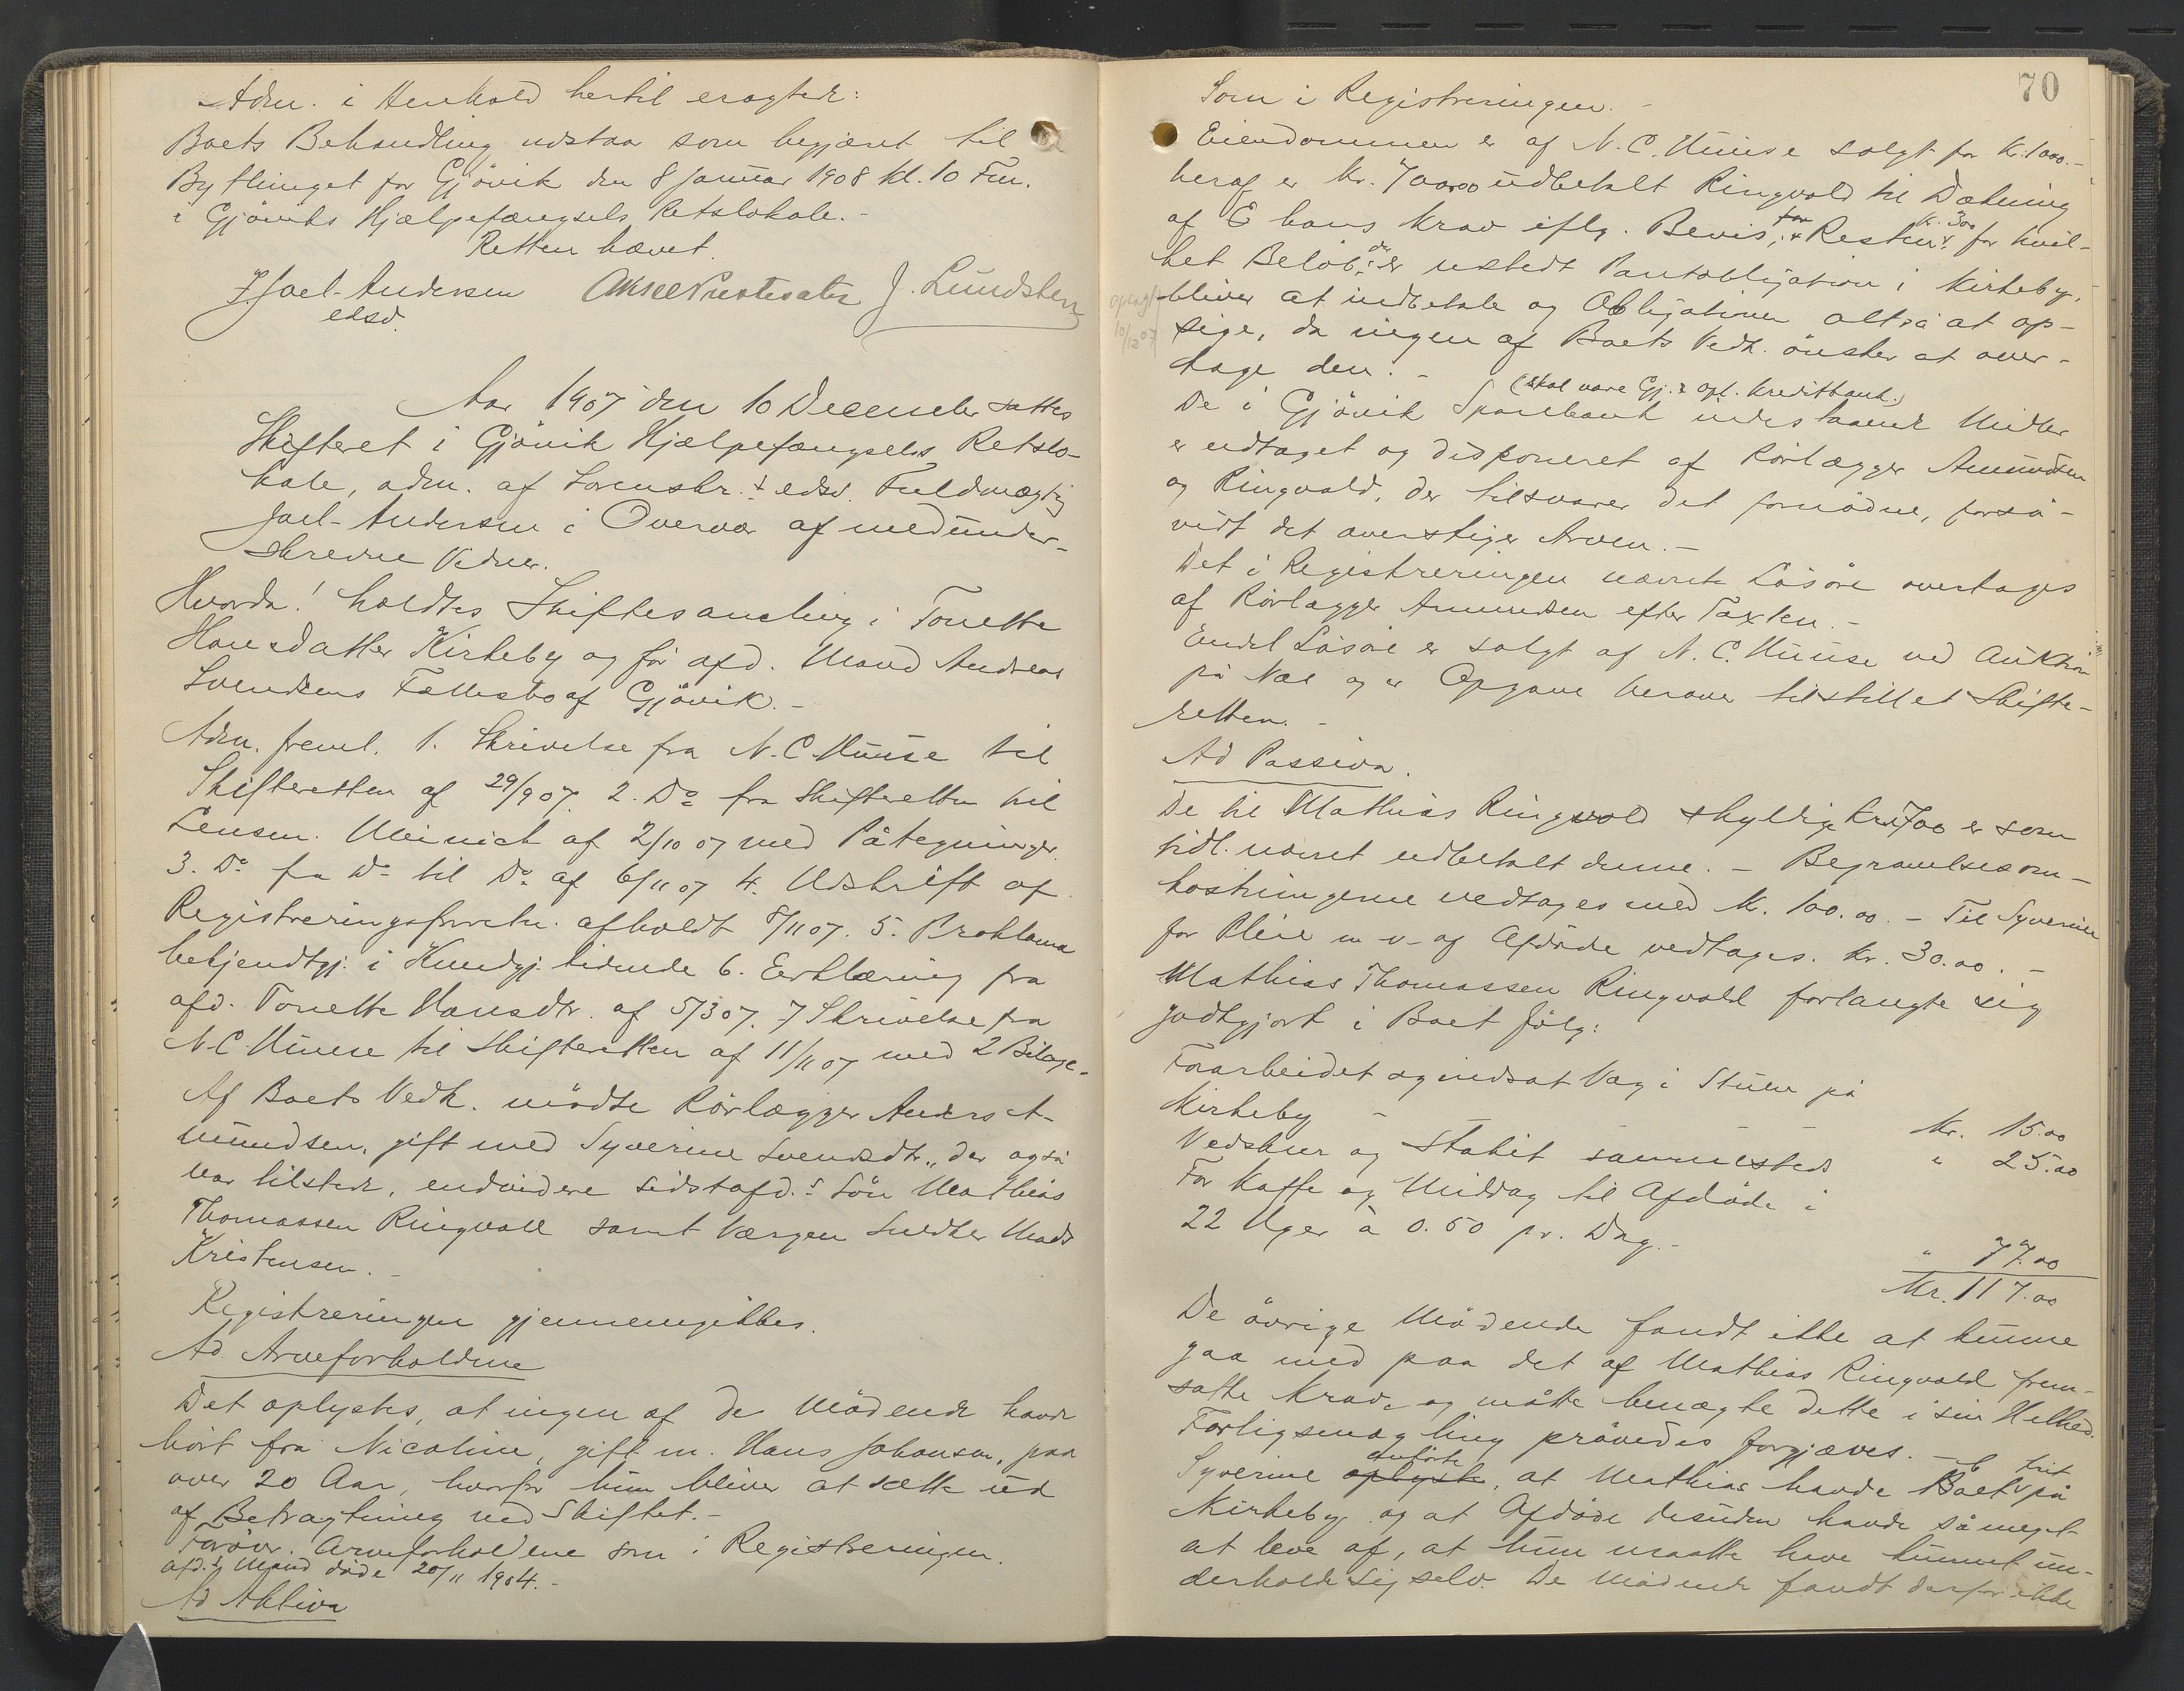 Adm. i Henhold hertil eragtede:
Boets Behandling udstaar som begjæret til
Bythinget for Gjövik den 8 Januar 1908 kl. 10 Fm.
i Gjöviks Hjælpefængsels Retslokale.-
Retten hævet.
Joel-Andersen J. Lundsten
edsv.
Aar 1907 den 10 December sattes
Skifteret i Gjövik Hjælpefængsels Retslo-
kale, adm. af Sorenskr.s edsv. Fuldmægtig
Joel-Andersen i Overvær af medunder-
skrevne Vidner.
Hvorda! holdtes Skiftesamling i Tonette
Hansdatter Kirkeby og før afd. Mand Andreas
Svendsens Fællesbo af Gjövik.-
Adm. freml. 1. Skrivelse fra N.C. Huuse til
Skifteretten af 29/9 07. 2. Do fra Skifteretten til
Lensm. Meinich af 2/10 07 med Påtegninger.
3. Do fra Do til Do af 6/11 07 4. Udskrift af
Registreringsforretn. afholdt 8/11 07. 5. Proklama
bekjendtgj. i Kundgj. tidende 6. Erklæring fra
afd. Tonette Hansdtr. af 5/3 07. 7 Skrivelse fra
N.C. Huuse til Skifteretten af 11/11 07 med 2 Bilage.
Af Boets Vedk. mödte Rörlægger Anders A-
mundsen, gift med Syverine Svendsdtr., der også
var tilstede, endvidere sidstafd.s Sön Mathias
Thomassen Ringvold samt Værgen Snedker Mads
Kristensen.-
Registreringen gjennemgikkes.
Ad Arveforholdene
Det oplystes, at ingen af de Mödende havde
hört fra Nicoline, gift m. Hans Johansen, paa
over 20 Aar, hvorfor hun bliver at sætte ud
af Betragtning ved Skiftet.-
Foröv. Arveforholdene som i Registreringen.
afd.s Mand döde 20/11 1904.-
Ad Aktiva
70
Som i Registreringen.-
Eiendommen er af N.C. Huuse solgt for Kr. 1000.-
heraf er Kr. 700.00 udbetalt Ringvold til Dækning
af hans Krav iflg. Bevis, Resten kr. 300 for hvil-
ket Belöb der er udstedt Pantobligation i Kirkeby,
bliver at indbetale og Obligationen altså at op-
oplagt
10/12 07
sige, da ingen af Boets Vedk. önsker at over-
tage den.-
(skal være Gj. & opl. Kreditbank.)
De i Gjövik Sparebank indestaaende Midler
er udtaget og disponeret af Rörlægger Amundsen
og Ringvold, der tilsvarer det fornödne, forså-
vidt det overstiger Arven.-
Det i Registreringen nævnte Lösöre overtages
af Rörlægger Amundsen efter Taxten.-
Endel Lösöre er solgt af N.C. Huuse ved Auktion
på og er Opgave herover tilstillet Skifte-
retten.-
Ad Passiva.
De til Mathias Ringvold skyldige Kr. 700 er som
tidl. nævnt udbetalt denne.- Begravelsesom-
kostningerne vedtages med Kr. 100.00.- Til Syverine
for Pleie m.v. af Afdöde vedtages. Kr. 30.00.-
Mathias Thomassen Ringvold forlangte sig
godtgjort i Boet fölg:
Forarbeidet og indsat Væg i Stuen på
Kirkeby - Kr. 15.00
Vedskur og Stakit sammesteds " 25.00
For Kaffe og Middag til Afdöde i
22 Uger à 0.50 pr. Dag.- " 77.00
Kr. 117.00
De övrige Mödende fandt ikke at kunne
gaa med paa det af Mathias Ringvold frem-
satte Krav, og måtte benægte dette i sin Helhed.
Forligsmægling prövedes forgjæves.-
anförte frit
Syverine oplyste, at Mathias havde Boet på
Kirkeby og at Afdöde desuden havde så meget
at leve af, at hun maatte have kunnet un-
derholde sig selv. De Mödende fandt derfor ikke